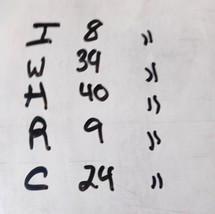 I 8 "
W 39 "
H 40 "
R 9 "
C 24 "